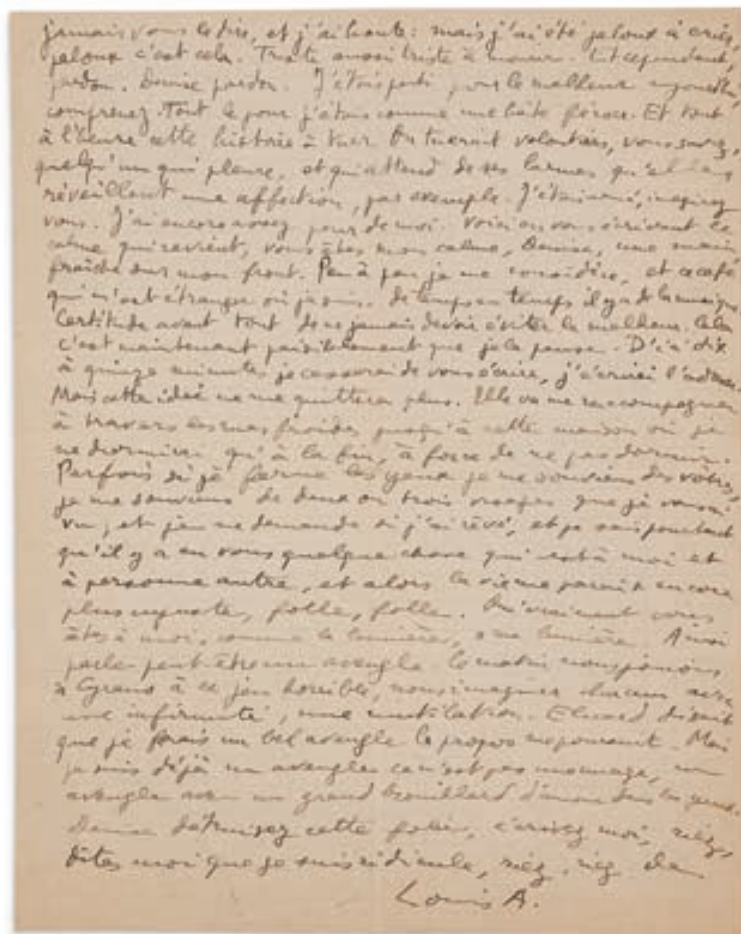 jamais vous le dire, et j'ai honte : mais j'ai été jaloux à crier,
jaloux c'est cela. Triste aussi triste à mourir. Et cependant,
pardon. Denise pardon. J'étais parti pour le malheur aujourd'hui,
comprenez. Tout le jour j'étais comme une bête féroce. Et tout
à l'heure cette histoire à tuer On tuerait volontiers, vous savez,
quelqu'un qui pleure, et qui attend de ses larmes qu'elles
réveillent une affection, par exemple. J'étais
vous. J'ai encore assez peur de moi. Voici en vous écrivant ce
calme qui revient, vous êtes mon calme, Denise, une main
fraîche sur mon front. Peu à peu je me considère, et ce café
qui m'est étranger où je suis. de temps en temps il y a de la musique
Certitude avant tout de ne jamais devoir éviter le malheur. Cela
c'est maintenant paisiblement que je le pense. D'ici dix
à quinze minutes je cesserai de vous écrire, j'écrirai l'adresse.
Mais cette idée ne me quittera plus. Elle va me raccompagner
à travers les rues froides jusqu'à cette maison où je
ne dormirai qu'à la fin, à force de ne pas dormir.
Parfois si je ferme les yeux je me souviens des vôtres,
je me souviens de deux ou trois visages que je vous ai
vu, et je me demande si j'ai rêvé, et je sais pourtant
qu'il y a en vous quelque chose qui est à moi et
à personne autre, et alors la vie me paraît encore
plus injuste, folle, folle. vraiment vous
êtes à moi, comme la lumière, ma lumière. Ainsi
parle peut-être un aveugle Ce matin nous jouions
à Cyrano à ce jeu horrible, nous imaginer chacun avec
une infirmité, une mutilation. Eluard disait
que je ferais un bel aveugle le propos Moi
je suis déjà un aveugle ce n'est pas un
aveugle avec un grand brouillard d'amour dans les yeux.
Denise détruisez cette folie, écrivez moi, riez,
dites moi que je suis ridicule, riez, riez
Louis A.